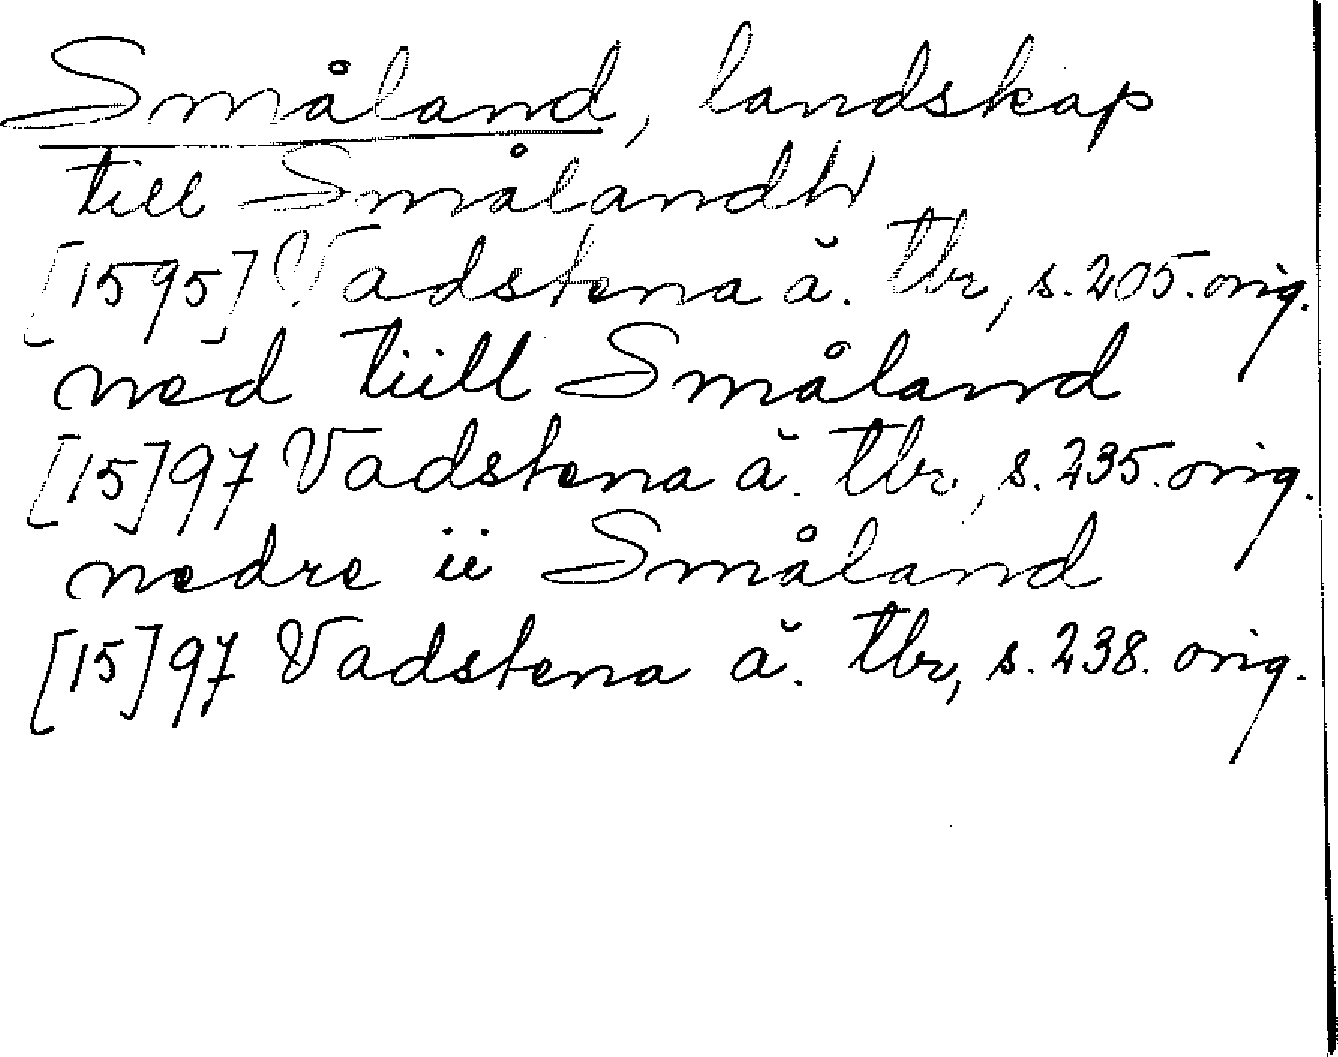 Småland, landskap
till Smålandh
[1595] Vadstena ä. tbr, s. 205. orig.
ned tiill Småland
[15]97 Vadstena ä. tbr, s. 235. orig.
nedre ii Småland
[15]97 Vadstena ä. tbr, s. 238. orig.